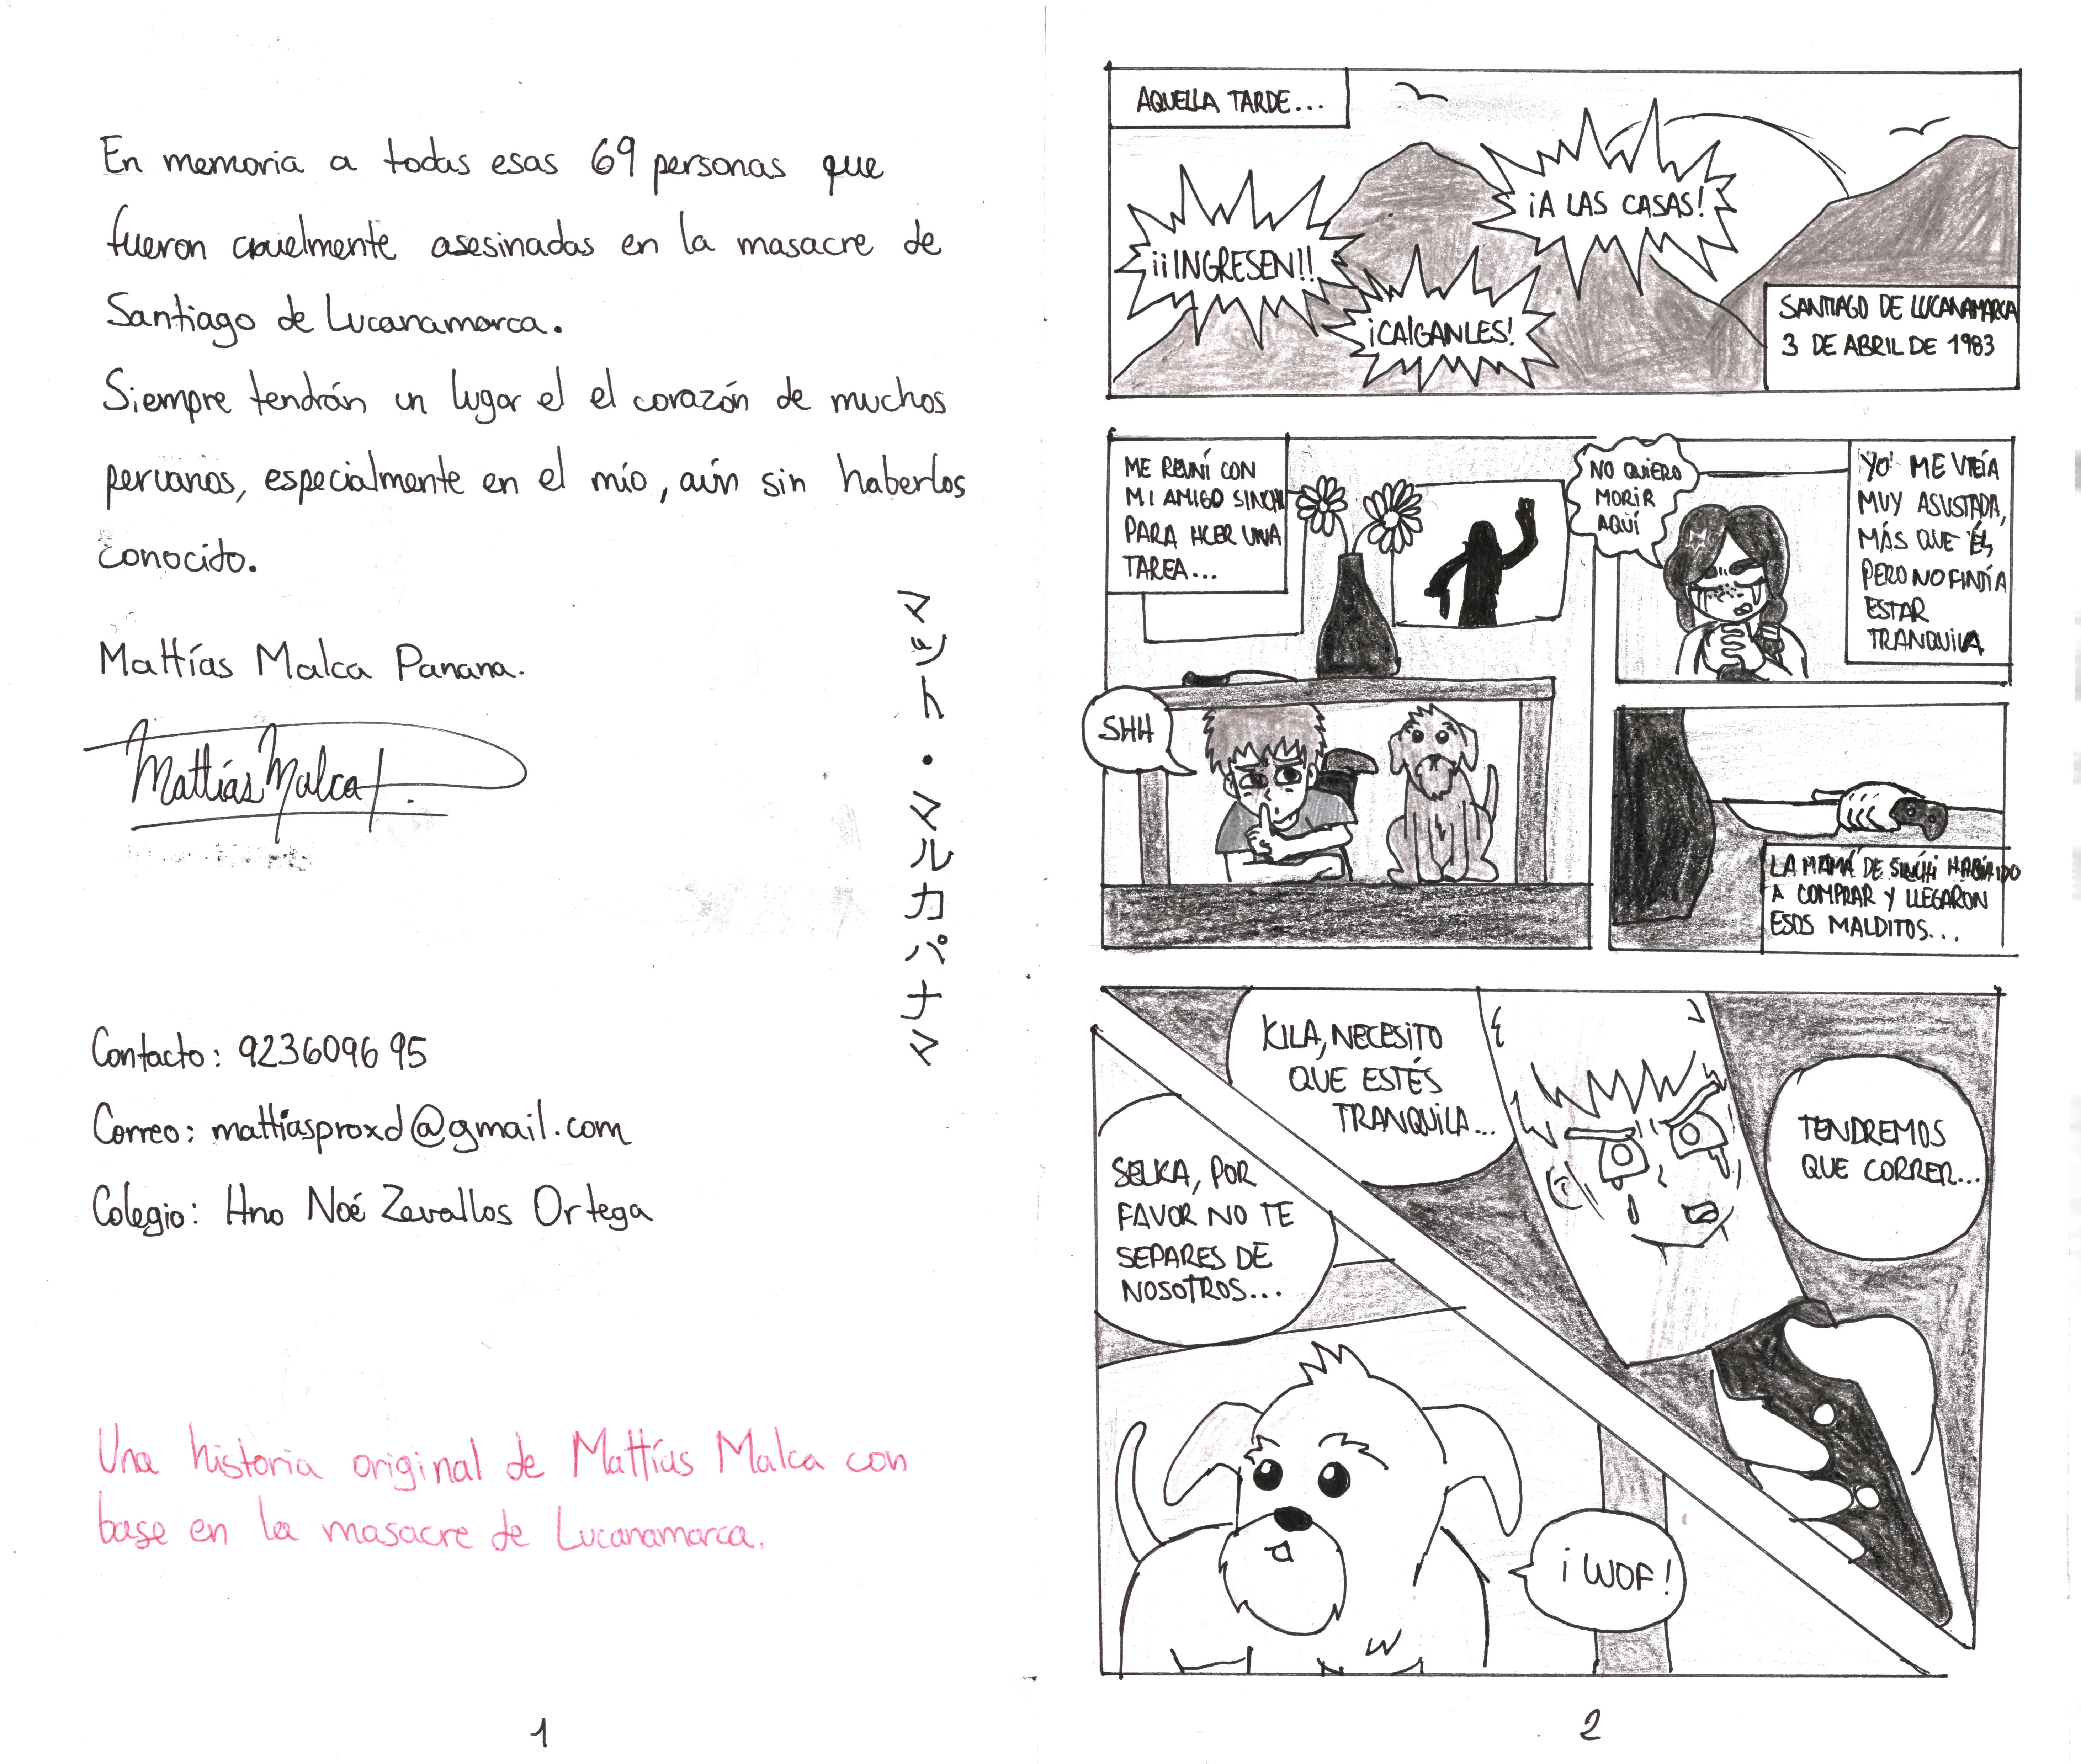 En memoria a todas esas 69 personas que
fueron cruelmente asesinadas en la masacre de
Santiago de Lucanamarca.
Siempre tendrán un lugar el el corazón de muchos
peruanos, especialmente en el mío, aún sin haberlos
conocido.
Mattías Malca Panana.
Mattías Malca
マット・マルカパナマ
Contacto: 923609695
Correo: mattiasproxd@gmail.com
Colegio: Hno Noé Zevallos Ortega
Una historia original de Mattías Malca con
base en la masacre de Lucanamarca.
1
AQUELLA TARDE...
¡¡INGRESEN!!
¡A LAS CASAS!
¡CAIGANLES!
SANTIAGO DE LUCANAMARCA
3 DE ABRIL DE 1983
ME REUNÍ CON
MI AMIGO SINCHI
PARA HCER UNA
TAREA...
SHH
NO QUIERO
MORIR
AQUÍ
YO ME VEÍA
MUY ASUSTADA,
MÁS QUE ÉL
PERO NO FINJÍA
ESTAR
TRANQUILA
LA MAMÁ DE SINCHI HABÍA IDO
A COMPRAR Y LLEGARON
ESOS MALDITOS...
KILA, NECESITO
QUE ESTÉS
TRANQUILA...
TENDREMOS
QUE CORRER...
SELKA, POR
FAVOR NO TE
SEPARES DE
NOSOTROS...
¡WOF!
2